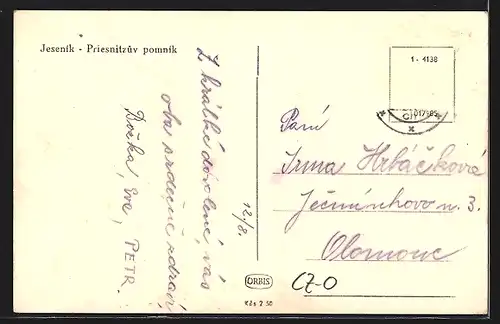 Jeseník - Priesnitzův pomník
Z krátké dovolené, vás
oba srdečně zdraví
Božka, Eve, PETR.
12/8.
1 - 4138
Paní
Irma Hrbáčková
Ječmínkova n. 3.
Olomouc
CZ-O
ORBIS
Kčs 2.50